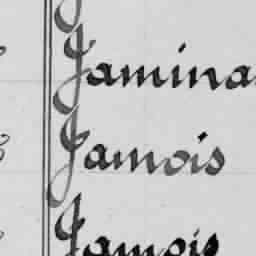 Jamina
Jamois
Jamois